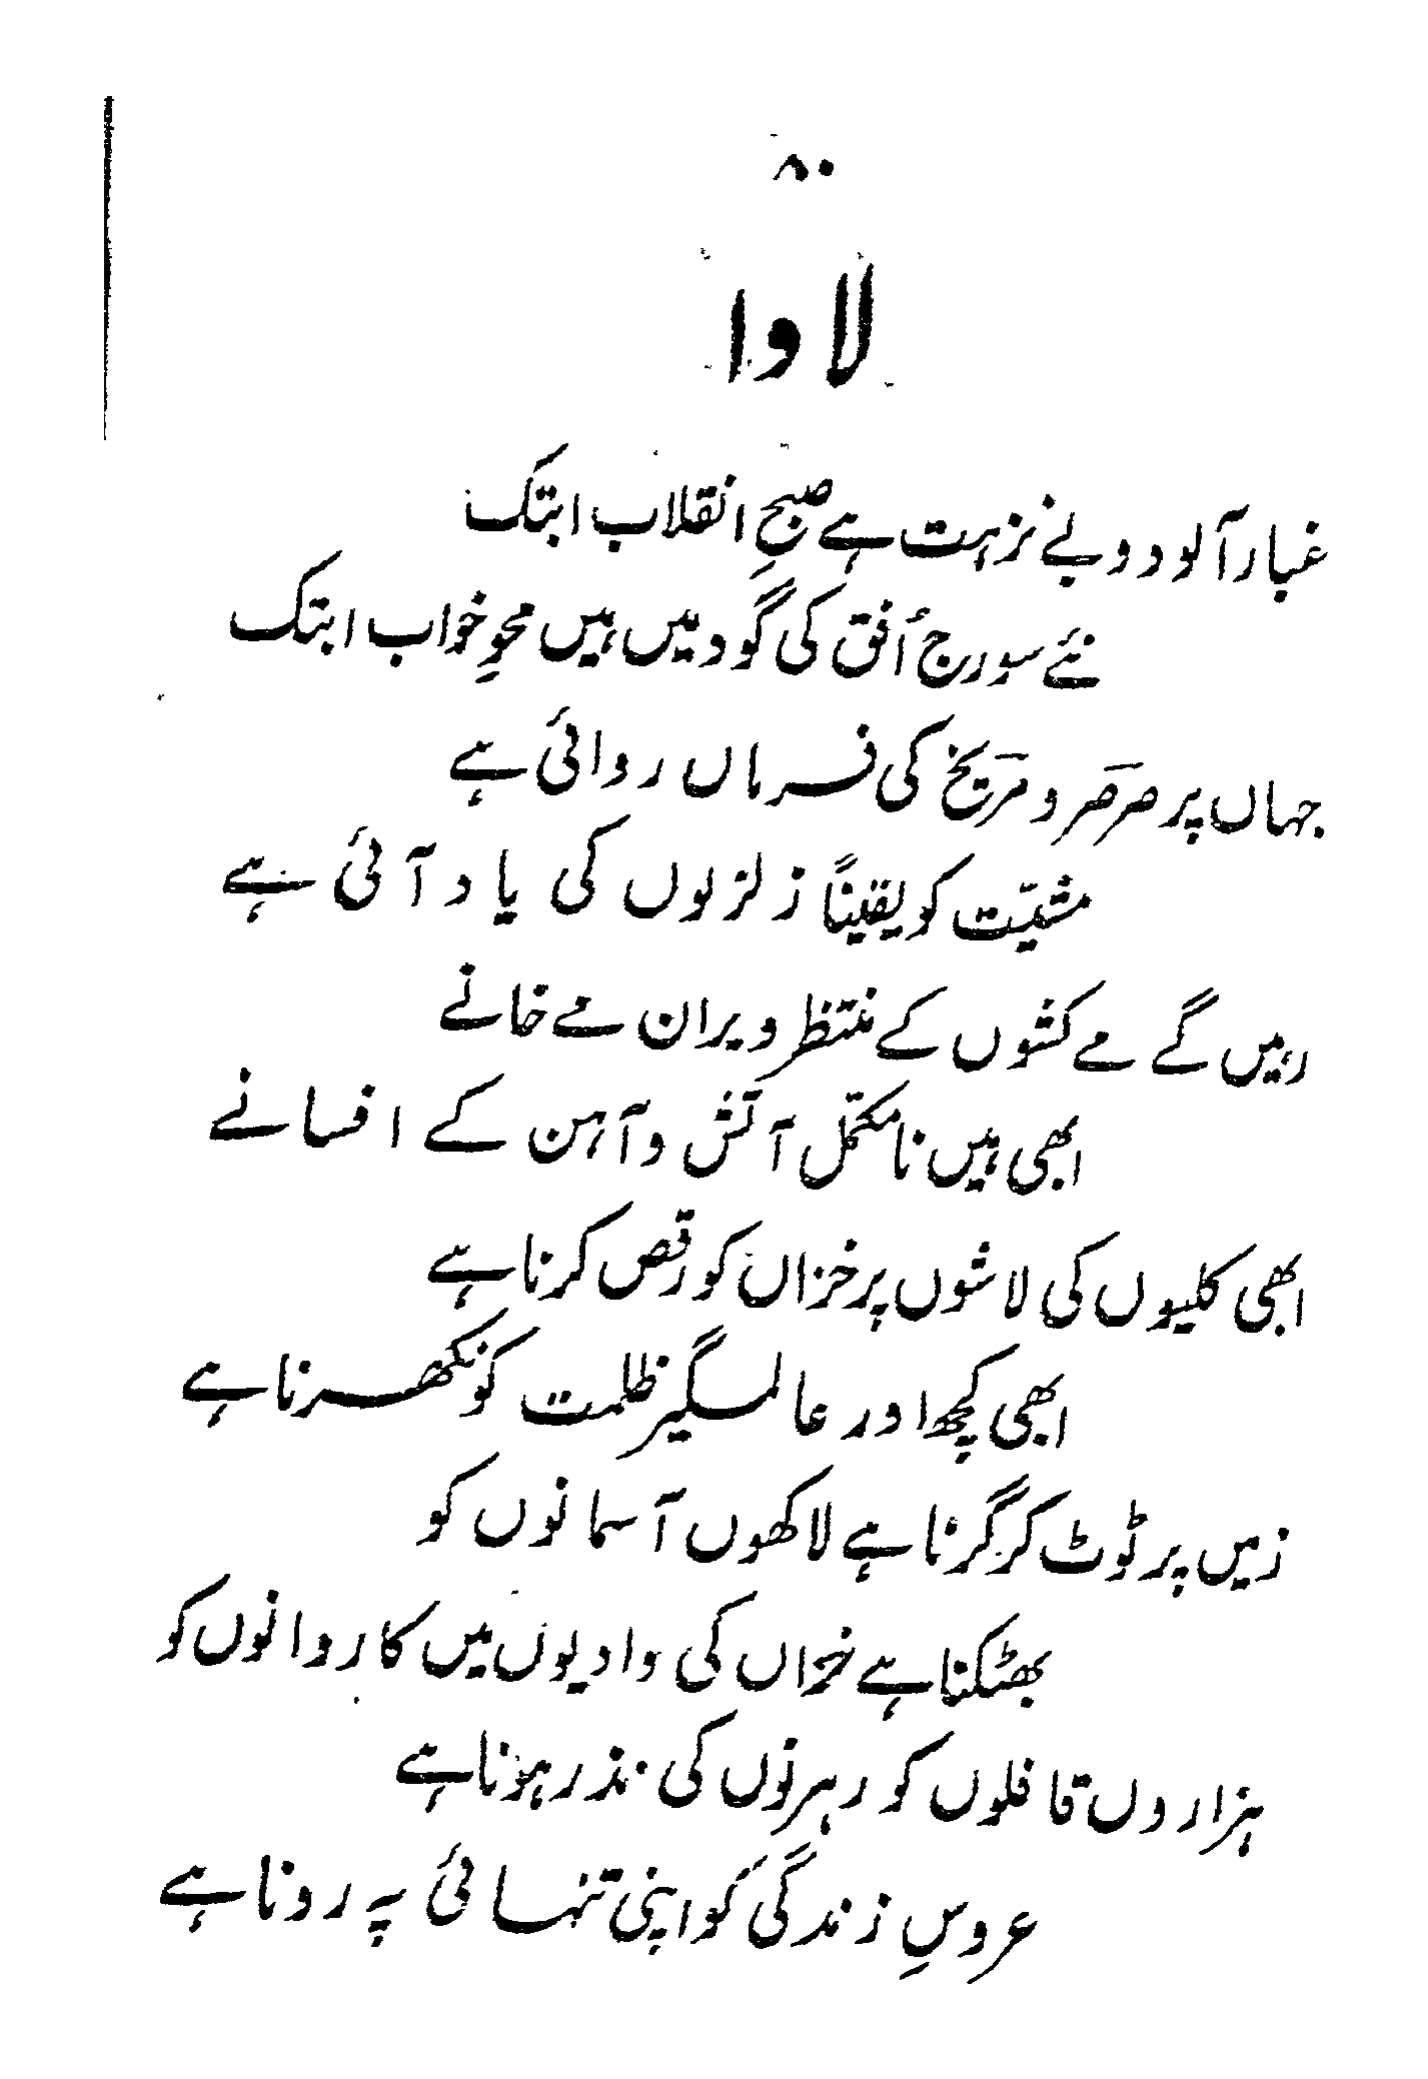 ۸۰
لاوا
غبار آلود و بے نزہت ہے صبحِ انقلاب ابتک
نئے سورج اُفق کی گود میں ہیں محوِ خواب ابتک
جہاں پر صَرصَر و مَریخ کی فرماں روائی ہے
مشیّت کو یقیناً زلزلوں کی یاد آئی ہے
رہیں گے مے کشوں کے منتظر ویران مے خانے
ابھی ہیں نامکمّل آتش و آہن کے افسانے
ابھی کلیوں کی لاشوں پر خزاں کو رقص کرنا ہے
ابھی کچھ اور عالمگیر ظلمت کو نکھرنا ہے
زمیں پر ٹوٹ کر گرنا ہے لاکھوں آسمانوں کو
بھٹکنا ہے خزاں کی وادیوں میں کاروانوں کو
ہزاروں قافلوں کو رہزنوں کی نذر ہونا ہے
عروسِ زندگی کو اپنی تنہائی پہ رونا ہے